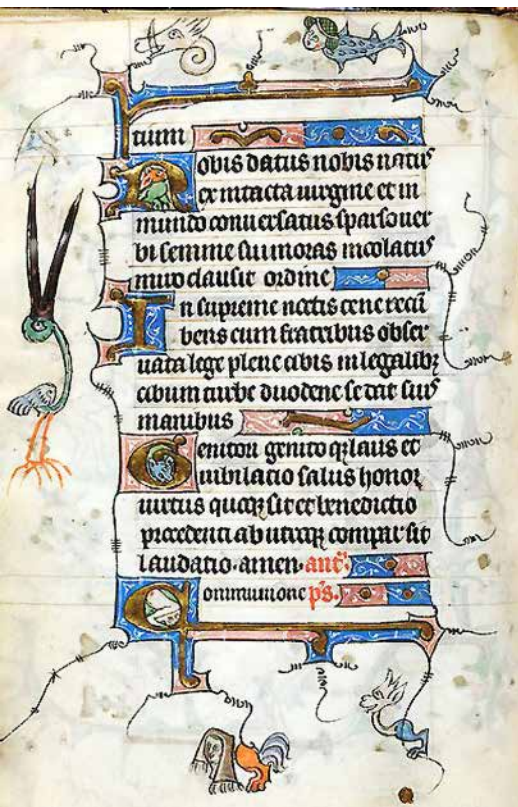 tium
Nobis datus nobis natus
ex intacta uirgine et in
mundo conuersatus sparso uer
bi semine sui moras incolatus
miro clausit ordine
In supreme noctis cene recu
bens cum fratribus obser
uata lege plene cibis in legalibꝫ
cibum turbe duodene se dat suis
manibus
Genitori genitoqꝫ laus et
iubilacio salus honor
uirtus quoqꝫ sit et benedictio
procedenti ab utroqꝫ compar sit
laudatio. amen. ant.
Communione ps.